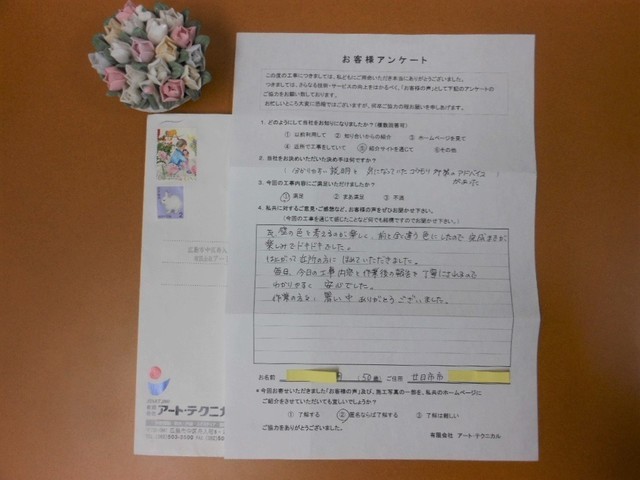 お客様アンケート
この度の工事につきましては、私どもにご用命いただき本当にありがとうございました。
つきましては、さらなる技術・サービスの向上をはかるべく、「お客様の声」として下記のアンケートの
ご協力をお願い致しております。
お忙しいところ大変に恐縮ではございますが、何卒ご協力の程お願いを申しあげます。
1. どのようにして当社をお知りになりましたか?(複数回答可)
① 以前利用して ② 知り合いからの紹介 ③ ホームページを見て
④ 近所で工事をしていて ⑤ 紹介サイトを通じて ⑥その他
2. 当社をお決めいただいた決め手は何ですか?
分かりやすい説明と 気になっていたコウモリ対策のアドバイス
があった
3. 今回の工事内容にご満足いただけましたか?
① 満足 ② まあ満足 ③ 不満
4. 私共に対するご意見・ご感想など、お客様の声をぜひお聞かせ下さい。
(今回の工事を通じて感じたことなど何でも結構ですのでお聞かせ下さい。)
壁の色を考えるのが楽しく、前と全く違う色にしたので 完成まで
楽しみでドキドキしました。
はんがい 近所の方に ほめていただきました。
毎日、今日の工事内容と作業後の報告を丁寧にされるので
わかりやすく 安心でした。
作業の方々、暑い中 ありがとうございました。
お名前 (50歳) ご住所 廿日市市
*今回お寄せいただきました「お客様の声」及び、施工写真の一部を、私共のホームページに
ご紹介をさせていただいても宜しいでしょうか?
① 了解する ② 匿名ならば了解する ③ 了解は難しい
ご協力をありがとうございました。
有限会社 アート・テクニカル
アート・テクニカル